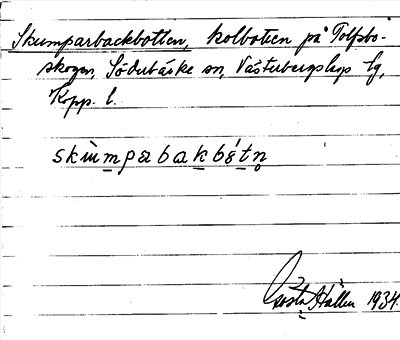 Skumparbackbotten, kolbotten på Tolfsbo-
skogen, Söderbärke sn, Västerbergslags hg,
Kopp. l.
skùmpabakbótn̥
Gösta Hällen 1934.